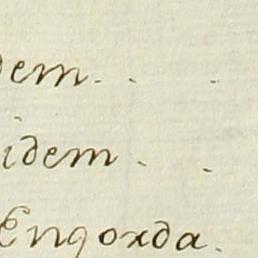 dem. . .
idem . .
Engorda.